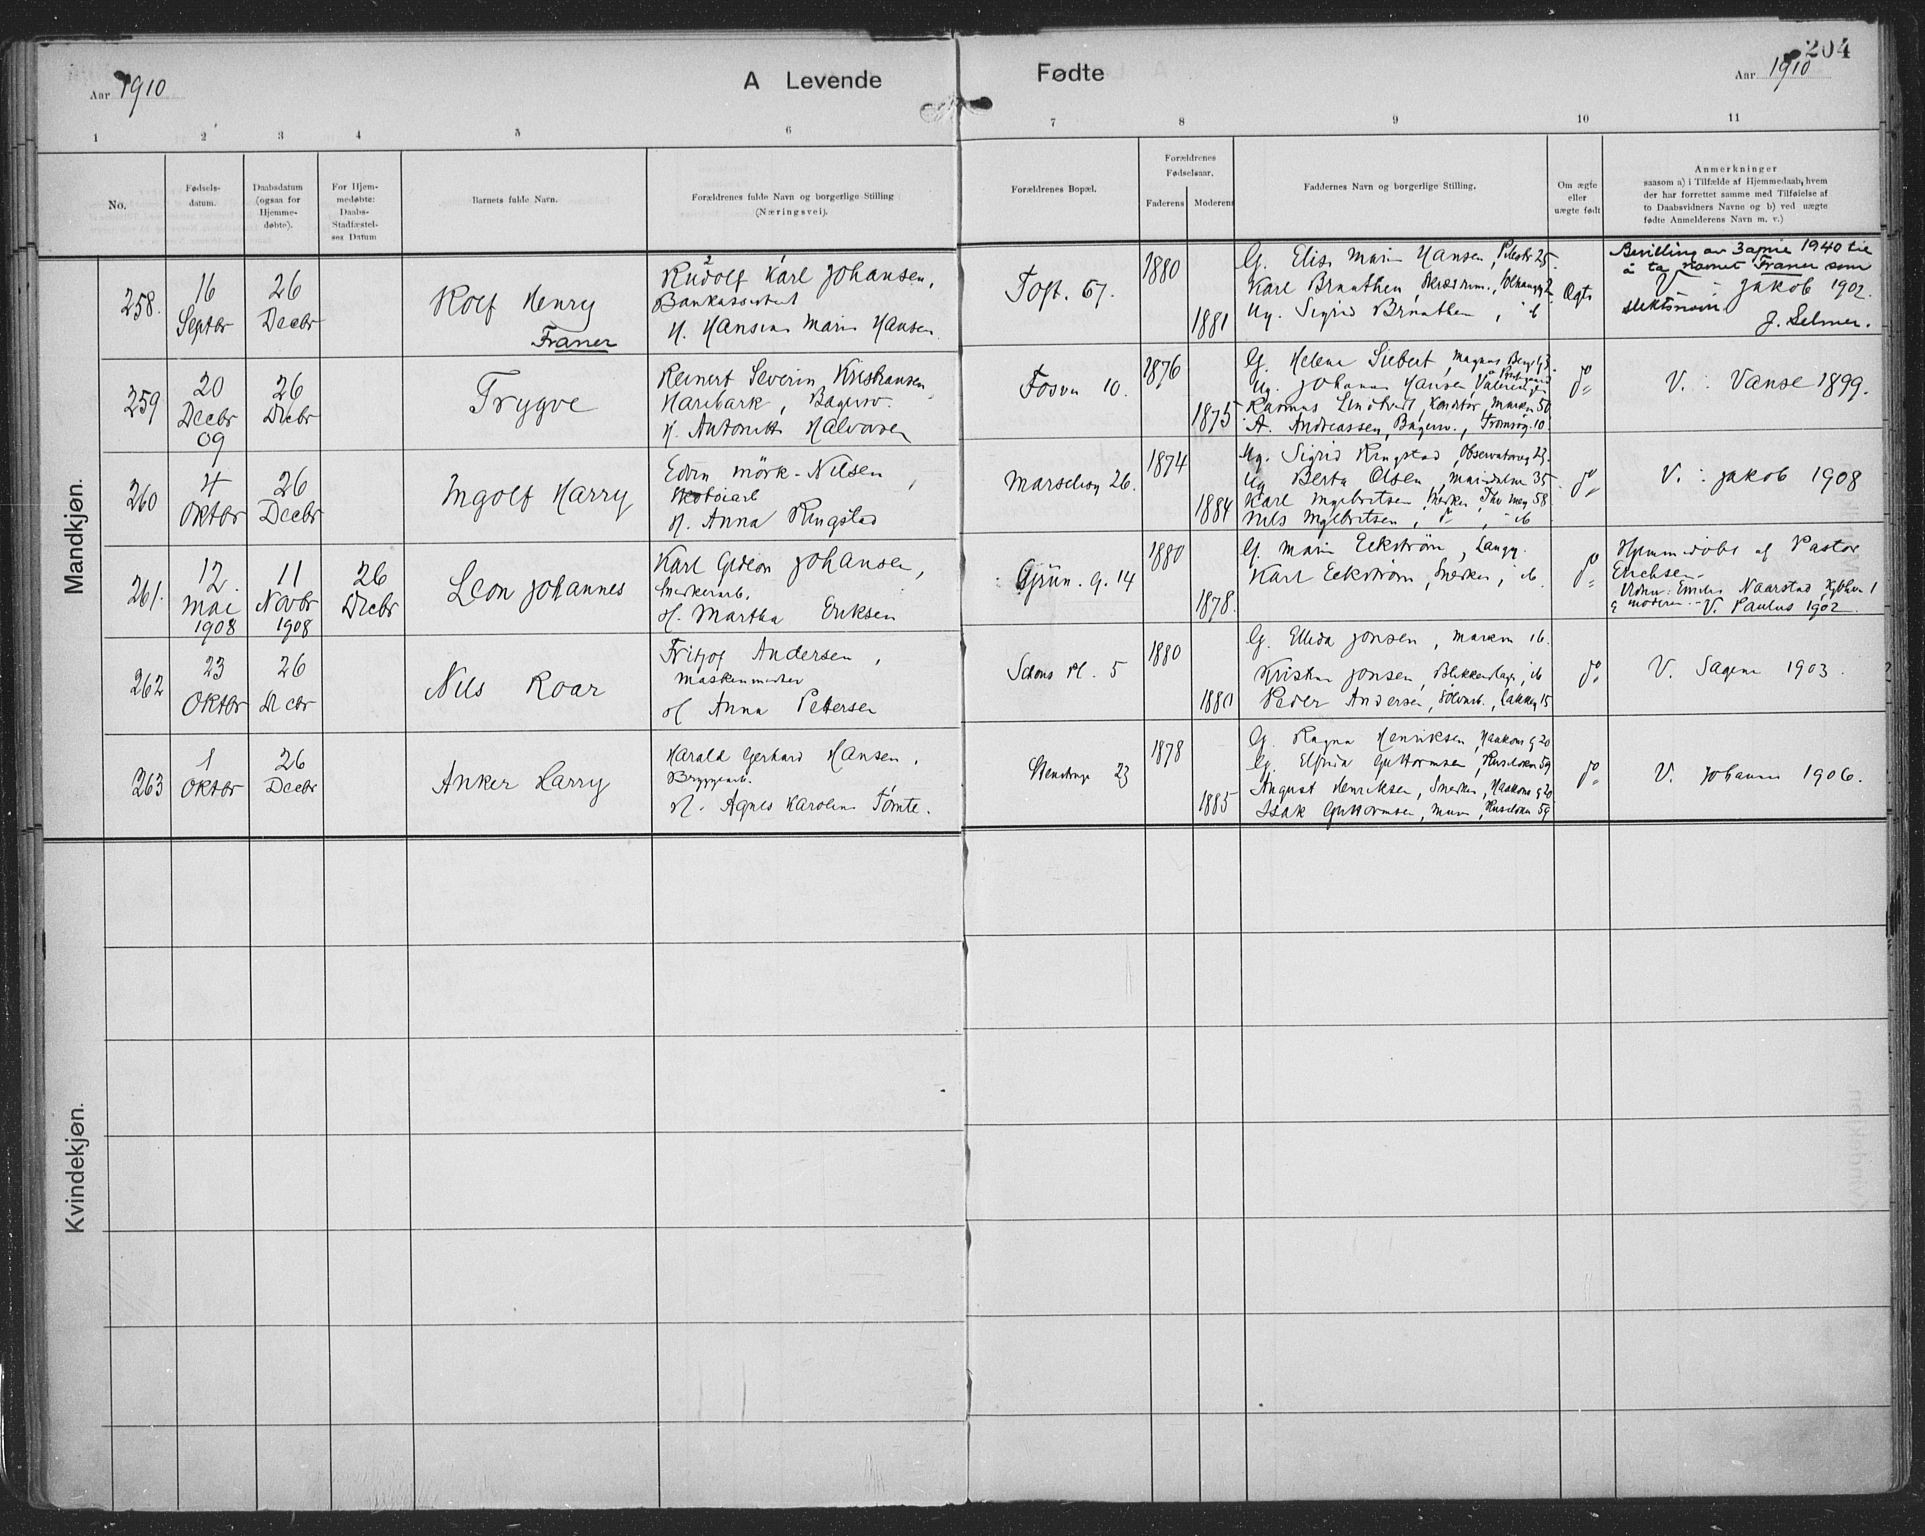 204
Aar 1910
A Levende
Fødte
Aar 1910
1 2 3 4 5 6 7 8 9 10 11
No.
Fødsels-
datum.
Daabsdatum
(ogsaa for
Hjemme-
døbte).
For Hjem-
medøbte:
Daabs-
Stadfæstel-
ses Datum
Barnets fulde Navn.
Forældrenes fulde Navn og borgerlige Stilling
(Næringsvei).
Forældrenes Bopæl.
Forældrenes
Fødselsaar.
Faderens
Moderens
Faddernes Navn og borgerlige Stilling.
Om ægte
eller
uægte født
Anmerkninger
saasom a) i Tilfælde af Hjemmedaab, hvem
der har forrettet samme med Tilføielse af
to Daabsvidners Navne og b) ved uægte
fødte Anmelderens Navn m. v.)
Mandkjøn.
258.
16
Septbr
26
Decbr
Rolf Henry
Franer
Rudolf Karl Johansen,
Bankassistent
H. Hansine Marie Hansen
Toft. 67.
1880
1881
G. Elise Marie Hansen, Pilestr 25.
Karl Braathen
Ug. Sigrid Braathen, ib
Ægte
Bevilling av 3 april 1940 til
å ta navnet Franer som
slektsnavn.
Jakob 1902.
J. Selmer.
259
20
Decbr
09
26
Decbr
Trygve
Reinert Severin Kristiansen
Harebark, Bagersv.
H. Antonette Halvorsen
Fosvn 10.
1876
1875
G. Helene Siebert, Magnus Bergs g 3.
Ug. Johanne Hansen,
Rasmus Lindtveit, Konditor, Marken 50
A. Andreassen, Bagersv., Tromsøg. 10.
do
V. : Vanse 1899.
260
4
Oktbr
26
Decbr
Ingolf Harry
Edvin Mörk-Nilsen,
Skotøiarb
H. Anna Ringstad
Marselisg 26.
1874
1884
Ug. Sigrid Ringstad, Observatorieg 23.
Ug Berta Olsen, Maridalsv 35
Karl Ingebritsen, Snekker, Thv Meyg 58
Nils Ingebritsen, do, ib
do
V. : Jakob 1908
261.
12
Mai
1908
11
Novbr
1908
26
Decbr
Leon Johannes
Karl Gideon Johansen,
Snekkerarb.
H. Martha Eriksen
Grün. g. 14
1880
1878.
G. Marie Eckstrøm, Langg.
Karl Eckstrøm, Snekker, ib
do
Hjemmedøbt af Pastor
Erichsen.
Vidner: Emilie Naarstad,
& moderen. V. Paulus 1902.
262
23
Oktbr
26
Decbr
Nils Roar
Fritjof Andersen,
Maskinmester
H Anna Petersen
Schous Pl. 5
1880
1880
G. Elleda Jonsen, Marken 16.
Kristian Jonsen, Blikkenslager, ib
Peder Andersen, Sølvarb., Lakkeg 15
do
V. Sagene 1903.
263
1
Oktbr
26
Decbr
Anker Harry
Harald Gerhard Hansen,
Bryggearb.
H. Agnes Karoline Tømte.
Stenstrupg 23
1878
1885
G. Ragna Henriksen, Haakons g 20
G. Elfrida Guttormsen, Huseboken 59
August Henriksen, Snekker, Haakons g 20
Isak Guttormsen, Murer, Huseboken 59
do
V. Johannes 1906.
Kvindekjøn.